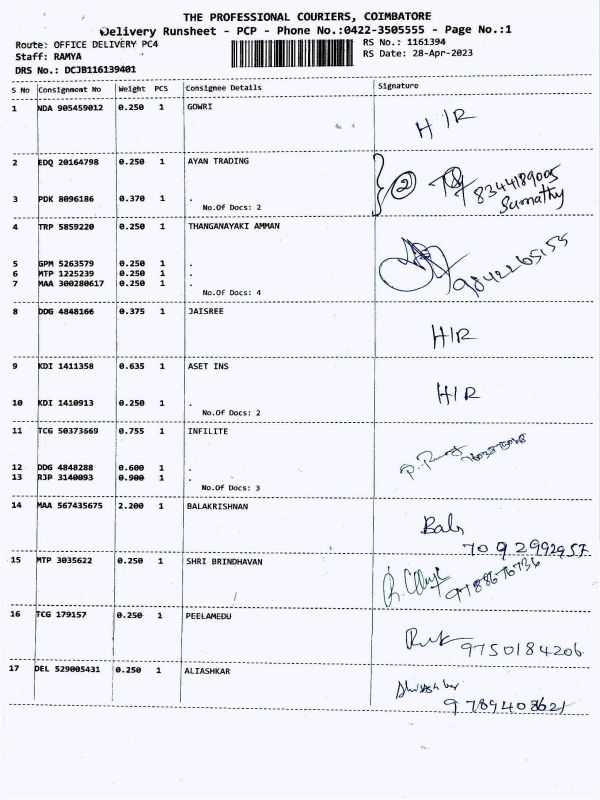 THE PROFESSIONAL COURIERS, COIMBATORE
Delivery Runsheet - PCP - Phone No.:0422-3505555 - Page No.:1
Route: OFFICE DELIVERY PC4 RS No.: 1161394
Staff: RAMYA RS Date: 28-Apr-2023
DRS No.: DCJB116139401
S No Consignment No Weight PCS Consignee Details Signature
1 NDA 905459012 0.250 1 GOWRI H/R
2 EDQ 20164798 0.250 1 AYAN TRADING 2 8344189005
3 PDK 8096186 0.370 1 . Sumathy
No.Of Docs: 2
4 TRP 5859220 0.250 1 THANGANAYAKI AMMAN
5 GPM 5263579 0.250 1 . 9842265155
6 MTP 1225239 0.250 1 .
7 MAA 300280617 0.250 1 .
No.Of Docs: 4
8 DDG 4848166 0.375 1 JAISREE H/R
9 KDI 1411358 0.635 1 ASET INS H/R
10 KDI 1410913 0.250 1 .
No.Of Docs: 2
11 TCG 50373669 0.755 1 INFILITE
12 DDG 4848288 0.600 1 .
13 RJP 3140093 0.900 1 .
No.Of Docs: 3
14 MAA 567435675 2.200 1 BALAKRISHNAN Bala
7092992957
15 MTP 3035622 0.250 1 SHRI BRINDHAVAN
16 TCG 179157 0.250 1 PEELAMEDU 9750184206
17 DEL 529005431 0.250 1 ALIASHKAR
9789408621